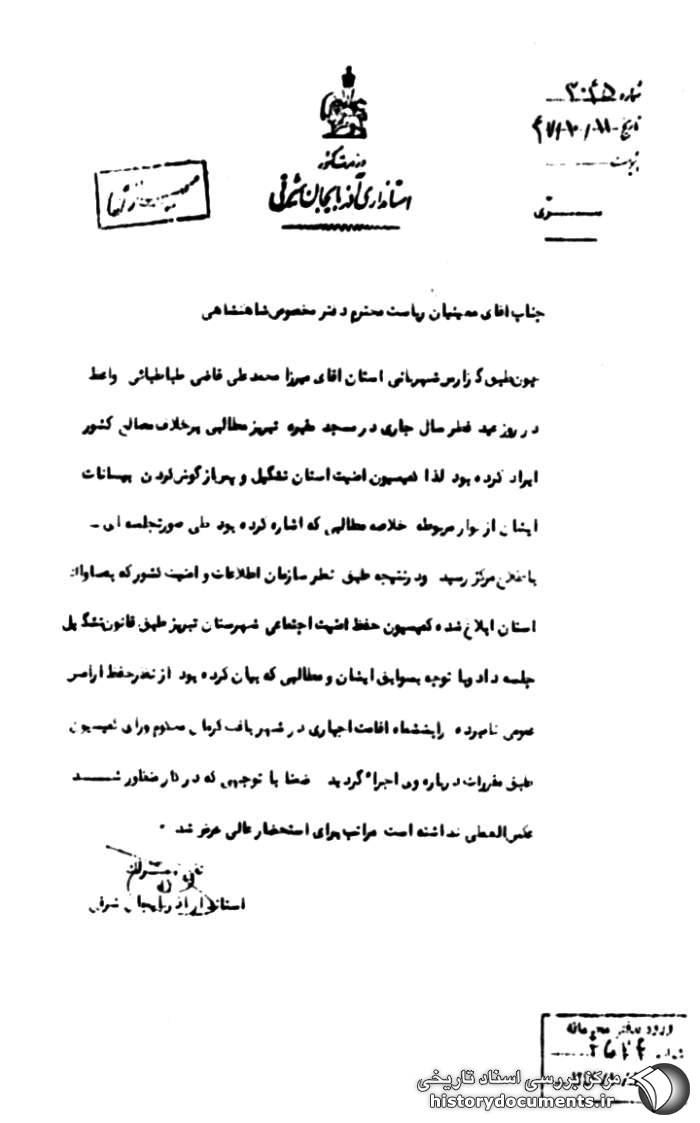 شماره ۳۰۴۵
تاریخ
پیوست
وزارت کشور
استانداری آذربایجان شرقی
سری
جناب آقای معینیان ریاست محترم دفتر مخصوص شاهنشاهی
چون طبق گزارش شهربانی استان آقای میرزا محمد علی قاضی طباطبائی واعظ
در روز عید فطر سال جاری در مسجد تبریز مطالبی برخلاف مصالح کشور
ایراد کرده بود لذا کمیسیون امنیت استان تشکیل و پس از گوش کردن بیانات
ایشان از نوار مربوطه خلاصه مطالبی که اشاره کرده بود طی صورتجلسه ای -
باطلاع مرکز رسید و درنتیجه طبق نظر سازمان اطلاعات و امنیت کشور که بساواک
استان ابلاغ شده کمیسیون حفظ امنیت اجتماعی شهرستان تبریز طبق قانون تشکیل
جلسه داد و با توجه بسوابق ایشان و مطالبی که بیان کرده بود از نظر حفظ آرامش
عمومی نامبرده را بششماه اقامت اجباری در شهر بافت کرمان محکوم و رای کمیسیون
طبق مقررات درباره وی اجرا گردید ضمنا با توجهی که در کار منظور شد
عکس العملی نداشته است مراتب برای استحضار عالی عرض شد .
استاندار آذربایجان شرقی
ورود بدفتر محرمانه
شماره
مرکز بررسی اسناد تاریخی
historydocuments.ir